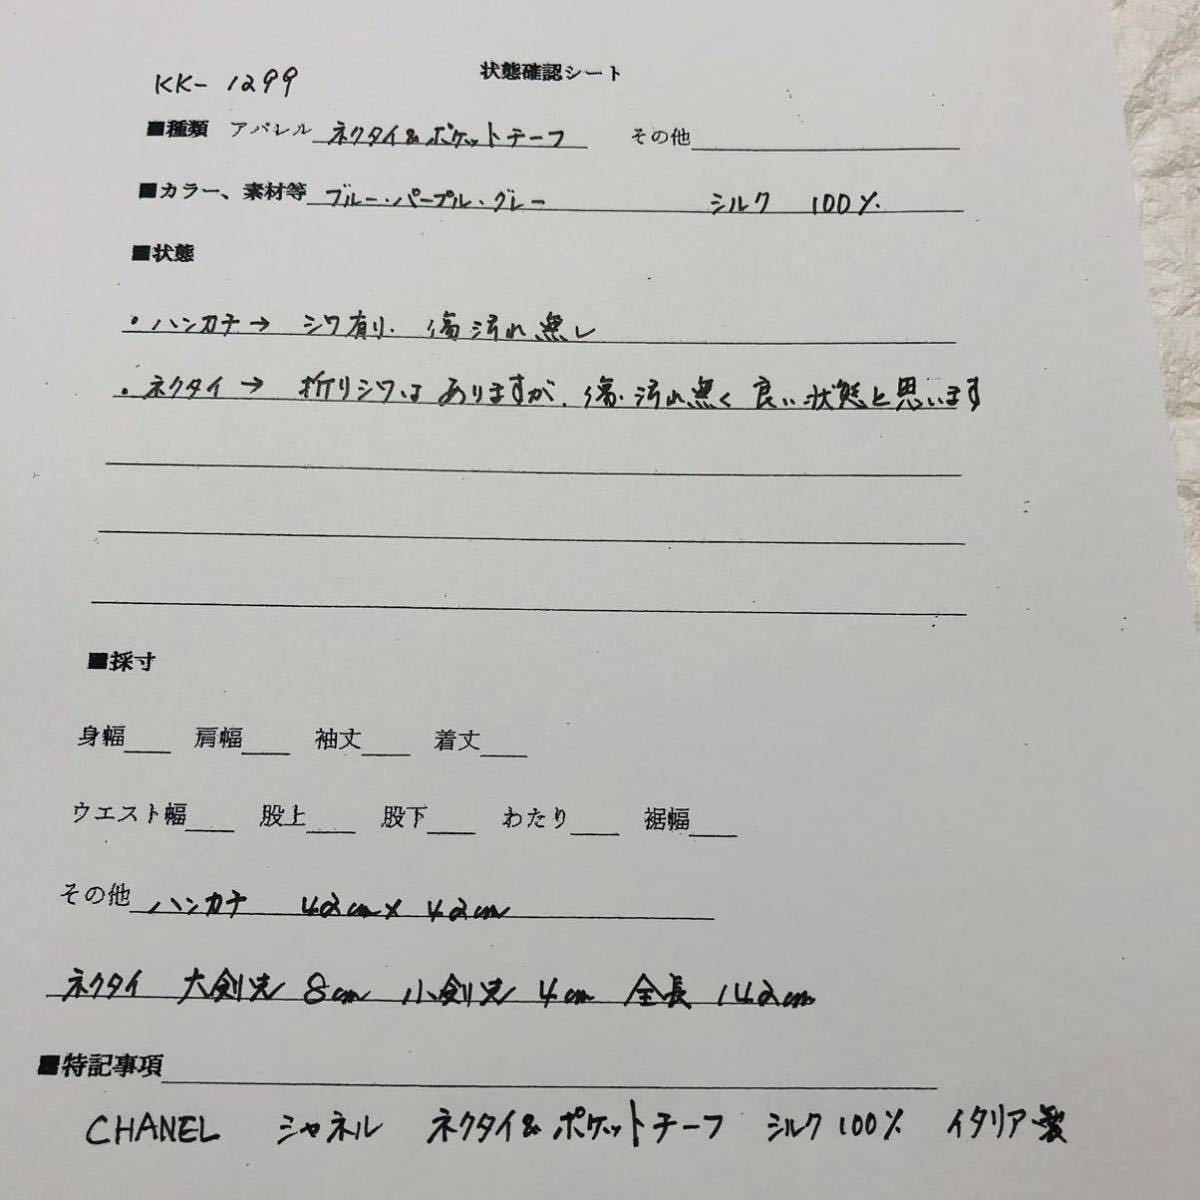 状態確認シート
KK-1299
■種類 アパレル ネクタイ&ポケットチーフ その他
■カラー、素材等 ブルー・パープル・グレー シルク 100%
■状態
・ハンカチ→ シワ有り. 傷汚れ無し
・ネクタイ→ 折りシワはありますが、傷・汚れ無く良い状態と思います
■採寸
身幅 肩幅 袖丈 着丈
ウエスト幅 股上 股下 わたり 裾幅
その他 ハンカチ 42cm×42cm
ネクタイ 大剣先 8cm 小剣先 4cm 全長 142cm
■特記事項
CHANEL シャネル ネクタイ&ポケットチーフ シルク100% イタリア製